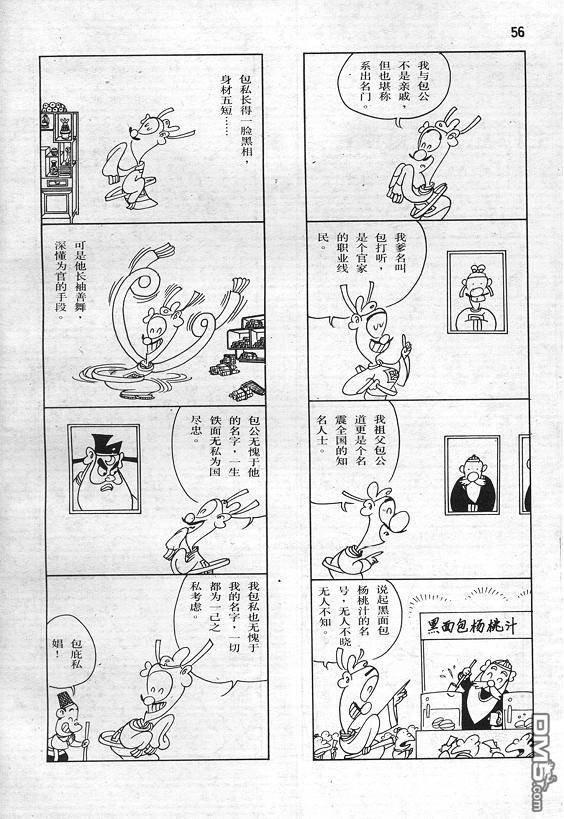 56
我与包公
不是亲戚，
但也堪称
系出名门。
我爹名叫
包打听，
是个官家
的职业线
民。
我祖父包公
道更是个名
震全国的知
名人士。
说起黑面包
杨桃汁的名
号，无人不晓
无人不知。
黑面包杨桃汁
包私长得一脸黑相，
身材五短……
可是他长袖善舞，
深懂为官的手段。
包公无愧于他
的名字，一生
铁面无私为国
尽忠。
我包私也无愧于
我的名字，一切
都为一己之
私考虑。
包庇私
娼！
DM5
.com